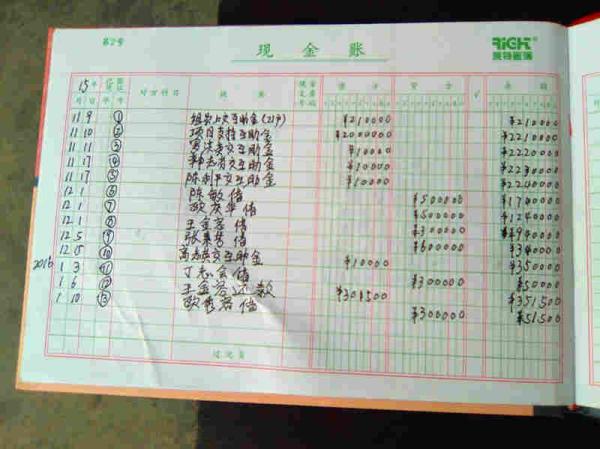 第2号
现金账
RiGHT
15年
月 日 字 号 对方科目 摘要 借方 贷方 √ 余额
11 9 ① 上交互助金(21户) ¥210000 ¥210000
11 10 ② 项目支持互助金 ¥2000000 ¥2210000
11 11 ③ 交互助金 ¥10000 ¥2220000
11 17 ④ 交互助金 ¥10000 ¥2230000
11 17 ⑤ 陈利平交互助金 ¥10000 ¥2240000
12 1 ⑥ 陈敏借 ¥500000 ¥1740000
12 1 ⑦ 借 ¥500000 ¥1240000
12 1 ⑧ 王金容借 ¥300000 ¥940000
12 5 ⑨ 借 ¥600000 ¥340000
12 5 ⑩ 交互助金 ¥10000 ¥350000
2016 1 3 ⑪ 丁志会借 ¥300000 ¥50000
1 6 ⑫ 王金容还款 ¥301500 ¥351500
1 10 ⑬ 借 ¥300000 ¥51500
过次页